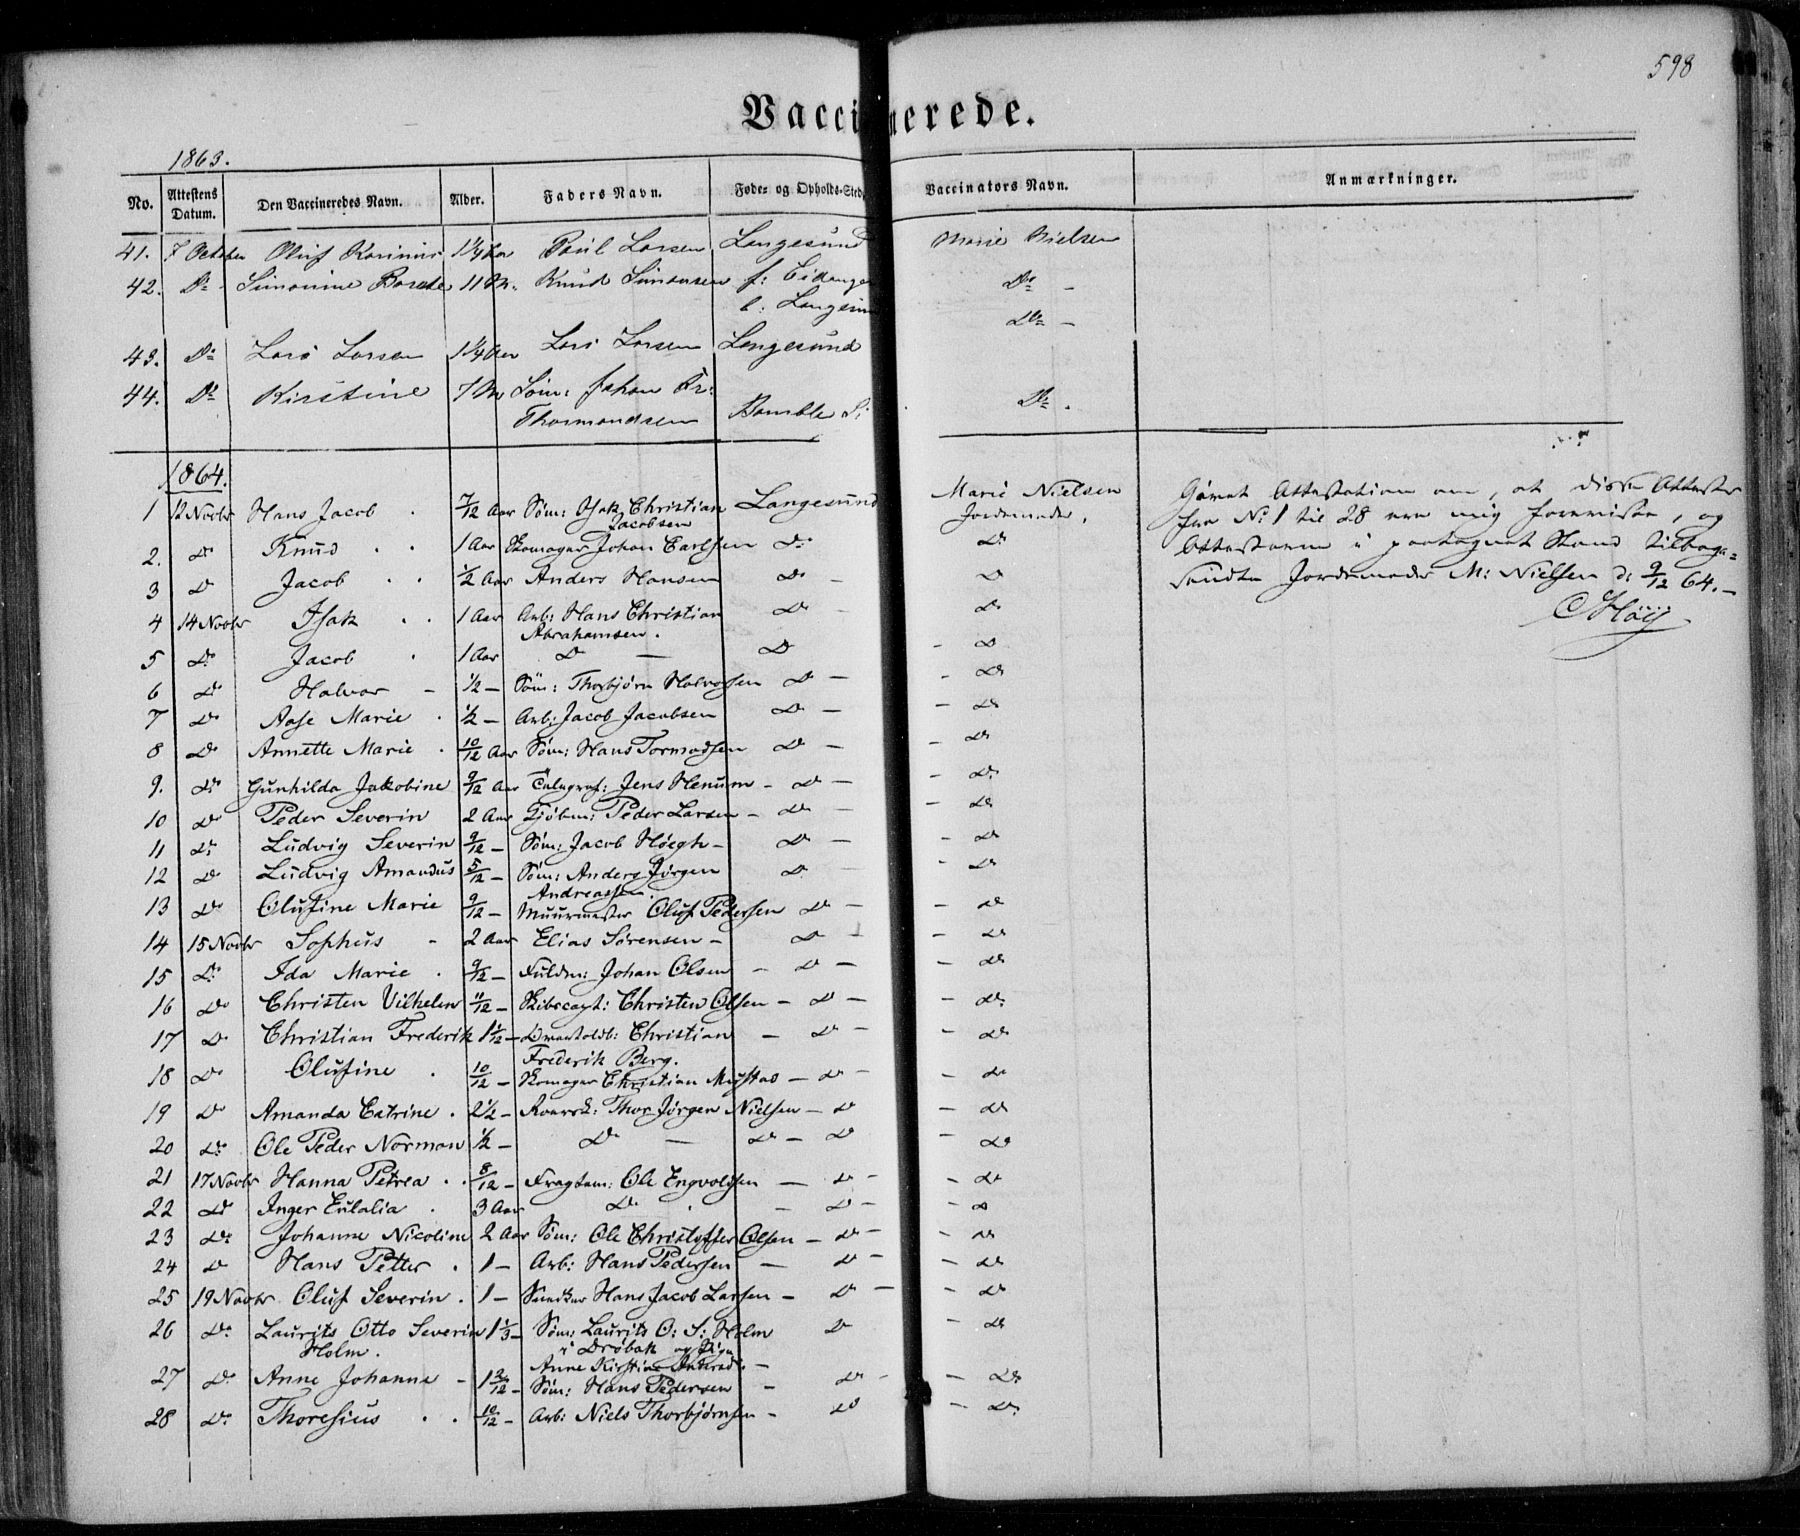 598
Vaccinerede.
1863.
No. Attestens Datum. Den Vaccineredes Navn. Alder. Faders Navn. Føde- og Opholds-Sted Vaccinators Navn. Anmærkninger.
41. 7 October Oluf Karinius 1¼ Aar Poul Larsen Langesund Marie Nielsen
42. Do - Simonine 11 M. Knud Simonsen f: Eidanger Do -
b: Langesund
43. Do Lars Larsen 1¼ Aar Lars Larsen Langesund Do -
44. Do Kirstine 7 M Søm: Johan Kr: Do .
Thormondsen Bamble
1864.
1 12 Novbr Hans Jacob . 7/12 Aar Søm: Isak Christian Langesund Marie Nielsen
Jacobsen Jordemoder.
Attestation om, at disse Attester
fra No 1 til 28 ere mig foreviste, og
Attesterne i paategnet Stand tilbage=
sendte Jordemoder M: Nielsen d: 9/12 64.-
2. Do Knud . . 1 Aar Skomager Johan Carlsen Do Do
3 Do Jacob . . ½ Aar Anders Hansen Do - Do
4 14 Novbr Isak . . 1 Aar Arb: Hans Christian Do - Do
Abrahamsen.
5 Do Jacob . 1 Aar Do — Do - Do
6 Do Halvor - ½ — Søm: Thorbjørn Halvorsen Do — - Do
7 Do Aase Marie . ½ — Arb: Jacob Jacobsen Do — - Do
8 Do Annette Marie . 10/12 Aar Søm: Hans Tormodsen Do — - Do
9. Do Gunhilda Jakobine 9/12 Aar Telegraf: Jens Henum - Do — - Do
10 Do Peder Severin 2 Aar Kjøbm: Peder Larsen - Do — - Do
11 Do Ludvig Severin 9/12 — Søm: Jacob Høegh - Do — - Do
12 Do Ludvig Amandus 5/12 — Søm: Anders Jørgen Do - Do
Andreassen.
13 Do Olufine Marie 9/12 — Muurmester Oluf Pedersen Do — - Do
14 15 Novbr Sophus - 2 Aar Elias Sørensen - Do — - Do
15 Do Ida Marie . 9/12 — Fuldm: Johan Olsen - Do — - Do
16 Do Christen Vilhelm 11/12 — Skibscapt: Christen Olsen - Do — - Do
17 Do Christian Frederik 1 1/12 — Christian - Do — - Do
Frederik Berg.
18 Do Olufine . 10/12 — Skomager Christian - Do — - Do
19 Do Amanda Catrine . 2½ — Thor Jørgen Nielsen - Do - Do
20 Do Ole Peder Norman ½ — Do — Do - Do - Do
21 17 Novbr Hanna Petrea . . 8/12 — Fragtem: Ole Engvoldsen — Do - - Do
22 Do Inger Eulalia . 3 Aar Do . - Do - - Do
23 Do Johanne Nicoline 2 Aar Søm: Ole Christoffer Olsen - Do - - Do
24 Do Hans Petter . 1 — Arb: Hans Pedersen — Do - - Do
25 19 Novbr Oluf Severin . 1 — Snedker Hans Jacob Larsen - Do - - Do
26 Do Laurits Otto Severin 1⅓ — Søm: Laurits O: S: Holm Do - Do
Holm. i Drøbak og Pigen
Anne Kirstine -
27 Do Anne Johanne - 1 2/12 — Søm: Hans Pedersen - Do - - Do
28 Do Thoresius . . 10/12 — Arb: Niels Thorbjørnsen - Do - Do